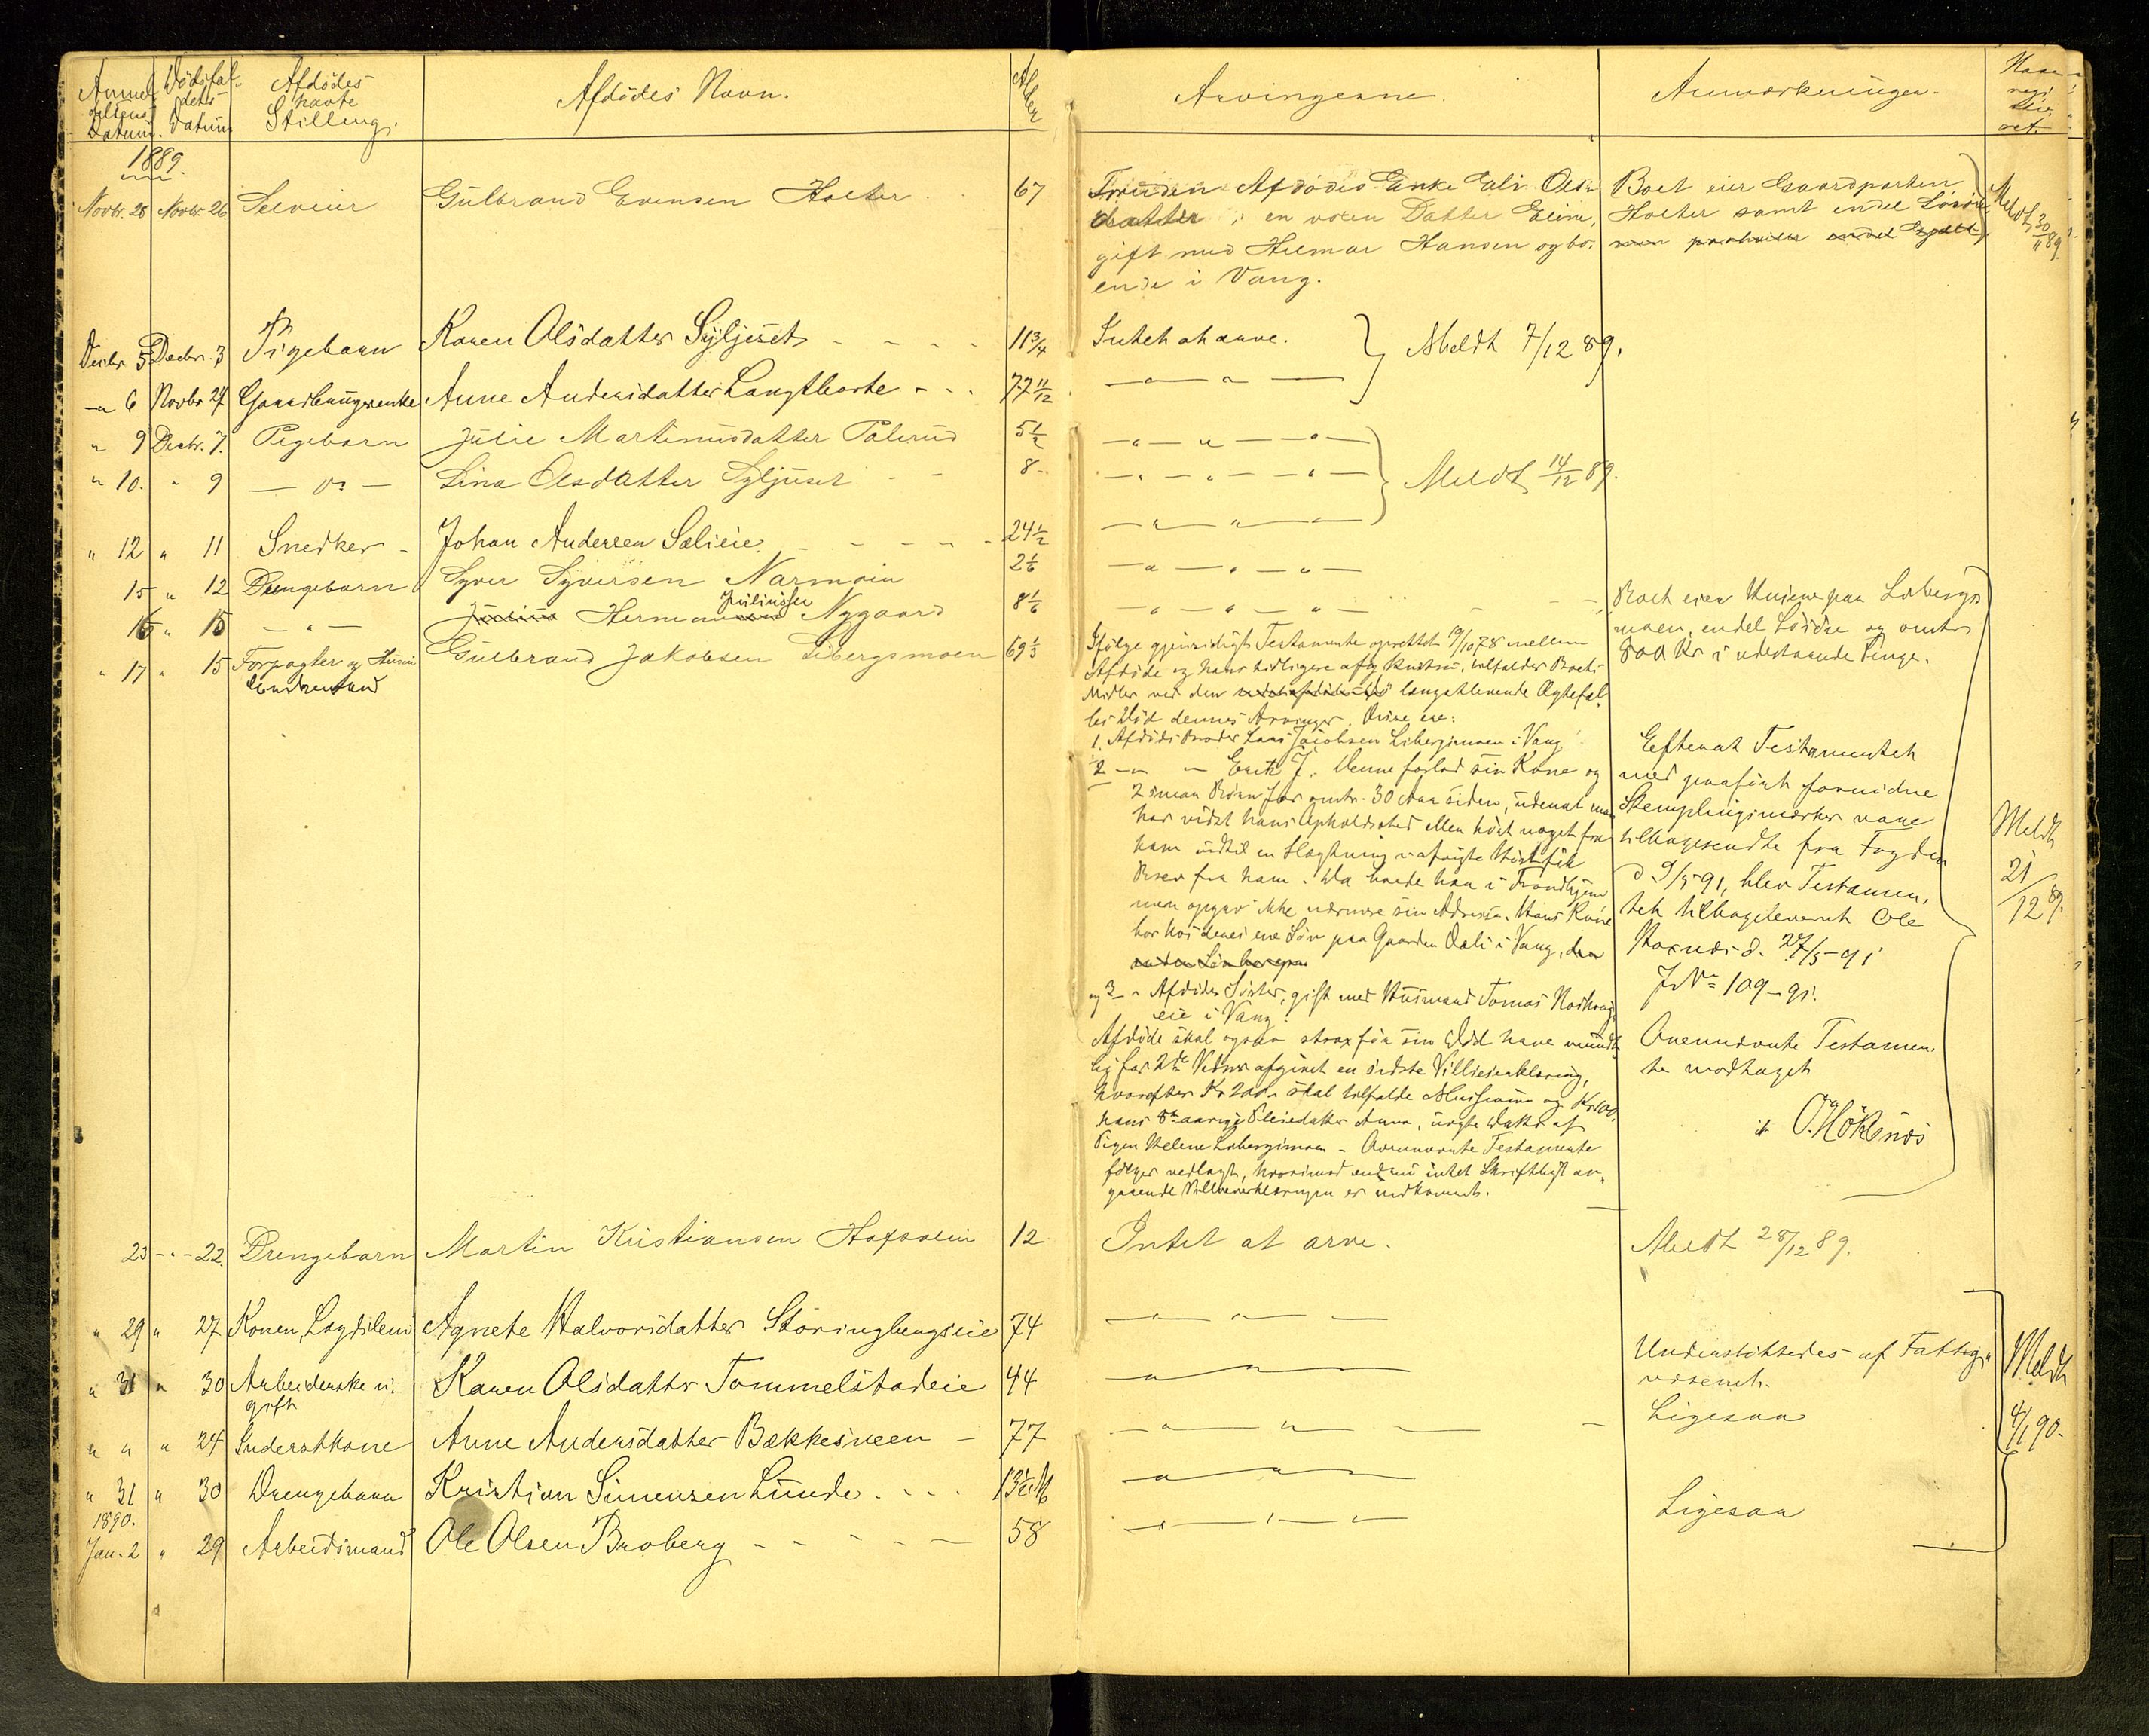 Anmel- Dödsfal- Afdödes Afdödes Navn. Alder Arvingerne. Anmærkninger.
deltens dets havte
Datum. Datum Stilling.
1889.
Novbr. 28 Novbr. 26 Selveier Gulbrand Evensen Holter 67
Foruden Afdödes Enke Eli Ols-
datter, en voxen Datter Eline,
gift med Helmar Hansen og bo-
ende i Vang.
Boet eier Gaardparten
Holter samt endel Lösöre
Meldt 30/11 89.
Decbr. 5 Decbr. 3 Pigebarn Karen Olsdatter Syljuset 11 3/4 Intet at arve. Meldt 7/12 89.
" 6 Novbr 27 Gaardbrugerenke Anne Andersdatter Langtborte 77 11/12 — " —
" 9 Decbr. 7. Pigebarn Julie Martinusdatter Palerud 5 1/2 — " — " —
" 10. " 9 — do — Lina Olsdatter Syljuset 8 — " — " — Meldt 14/12 89.
" 12 " 11 Snedker Johan Andersen Sælieie. 24 1/2 — " — " —
15 " 12 Drengebarn Syver Syversen Narmoin 2 1/6 — " — " —
16 " 15 — " — Julius Herman Juliussen Nygaard 8 1/6 — " — " —
" 17 " 15 Forpagter og Huus Gulbrand Jakobsen Libergsmoen 69 1/3
Ifölge gjensidigt Testamente oprettet 19/10 78 mellem
Afdöde og hans tidligere afg. Kustru, tilfalder Boets
Midler ved den længstlevende Ægtefæl-
les Död dennes Arvinger. Disse ere:
1. Afdödes Broder Lars Jacobsen Libergsmoen i Vang
2 — " — Erik J. Denne forlod sin Kone og
2 smaa Börn for omtr. 30 Aar siden, udenat man
har vidst hans Opholdssted eller hört noget fra
ham indtil en Slægtning afvigte Höst fik
Brev fra ham. Da boede han i Trondhjem
men opgav ikke nærmere sin Adresse. Hans Kone
bor hos deres ene Sön paa Gaarden Dæli i Vang,
og 3 — Afdödes Söster, gift med Husmand Tomas
eie i Vang.
Afdöde skal ogsaa strax för sin Död have mundt-
lig for 2de Vidner afgivet en sidste Villieserklæring,
hvorefter Kr 200 skal tilfalde Missionen og Kr 100
hans 8 aarige Pleiedatter Anna, uægte Datter af
Pigen Helene Libergsmoen - Ovennævnte Testamente
fölger vedlagt, hvorimod endnu intet Skriftligt an-
gaaende Villieserklæringen er indkommet.
Boet eier Husene paa Libergs
moen, endel Lösöre og omtr
800 Kr i udestaaende Penge.
Efterat Testamentet
med paafört fornödne
Stemplingsmærker vare
tilbagesendte fra Fogden
d 9/5 91, blev Testamen-
tet tilbageleveret Ole
d. 27/5-91
J No 109-91.
Ovennævnte Testamen-
te modtaget
O. Höklnäs
Meldt
21/12 89.
23 — " — 22. Drengebarn Martin Kristiansen Hofsveen 12 Intet at arve. Meldt 28/12 89.
" 29 " 27 Konen, Lægdslem Agnete Halvorsdatter Störingbergseie 74 — " — " —
" 31 " 30 Arbeiderske u. Karen Olsdatter Tommelstadeie 44 — " — " — Understöttedes af Fattig-
gift væsenet.
" " " 24 Inderstkone Anne Andersdatter Bækkesveen 77 — " — " — Ligesaa
" 31 " 30 Drengebarn Kristian Simensen Lunde 13 1/2 M — " — " —
1890.
Jan. 2 " 29 Arbeidsmand Ole Olsen Broberg 58 — " — " — Ligesaa
Meldt
4/1 90.